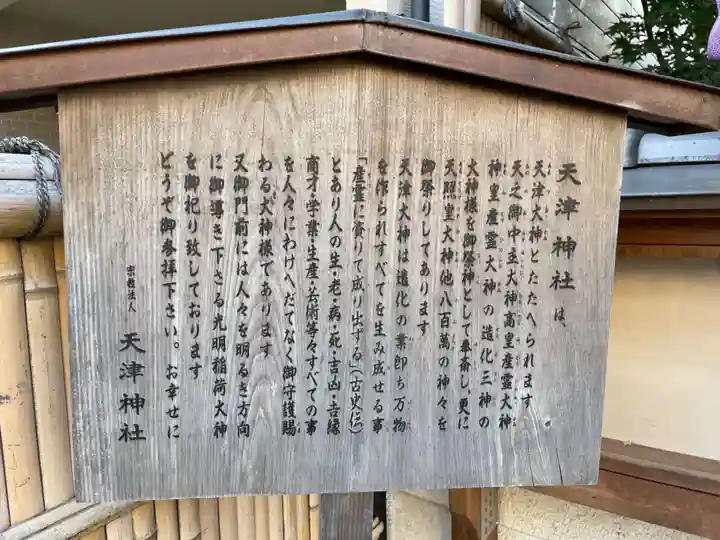 天津神社は、
天津大神とたたへられます
天之御中主大神高皇産霊大神
神皇産霊大神の造化三神の
大神様を御祭神として奉斎し更に
天照皇大神他八百萬の神々を
御祭りしてあります
天津大神は造化の業即ち万物
を作られすべてを生み成せる事
「産霊に資りて成り出ずる」(古史伝)
とあり人の生・老・病・死・吉凶・吉縁
商才・学業・生産・芸術等々すべての事
を人々にわけへだてなく御守護賜
わる大神様であります
又御門前には人々を明るき方向
に御導き下さる光明稲荷大神
を御祀り致しております
どうぞ御参拝下さい。お幸せに
宗教法人 天津神社